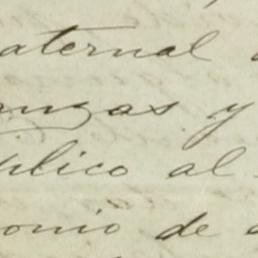 aternal
anzas y
plico al
onio de